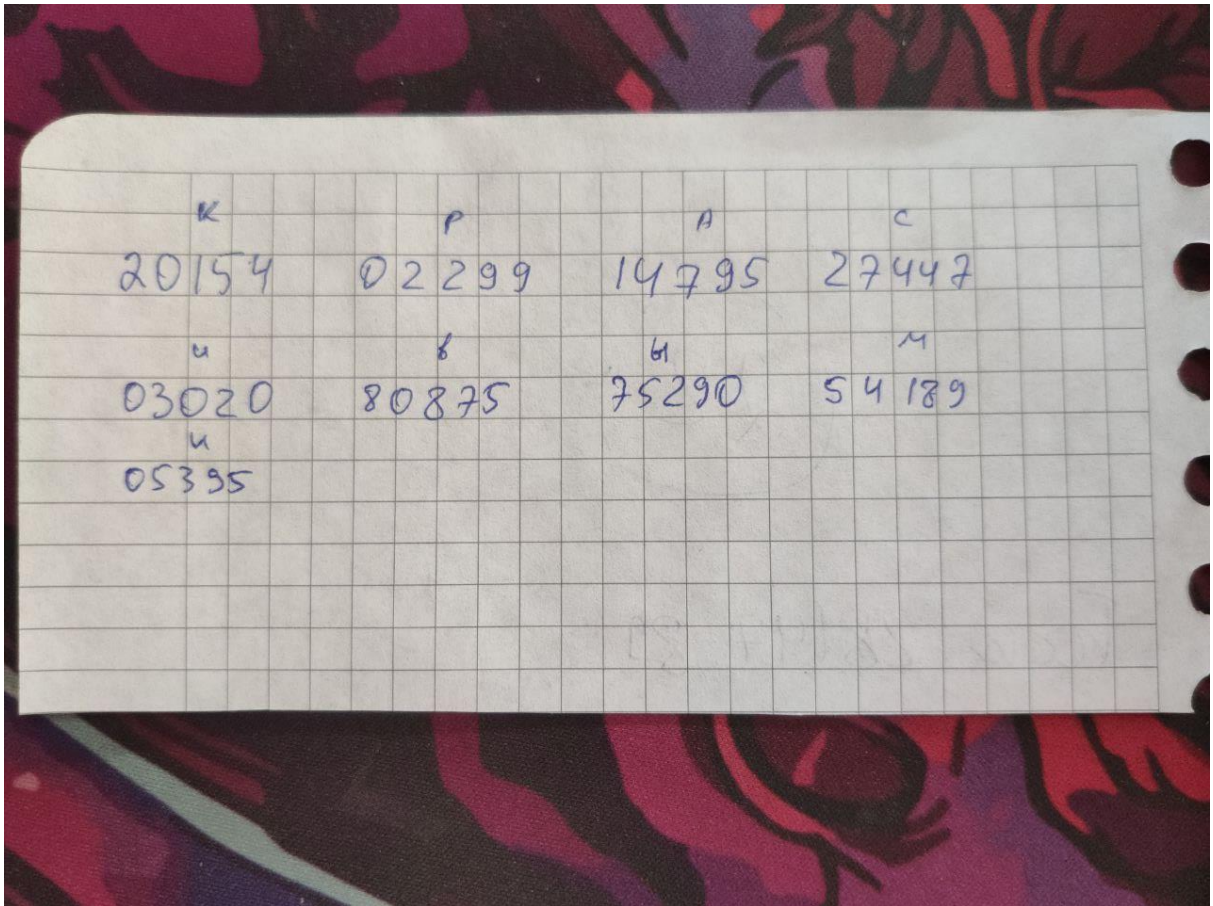 К Р А С
20154 02299 14795 27447
и в ы м
03020 80875 75290 54189
и
05395